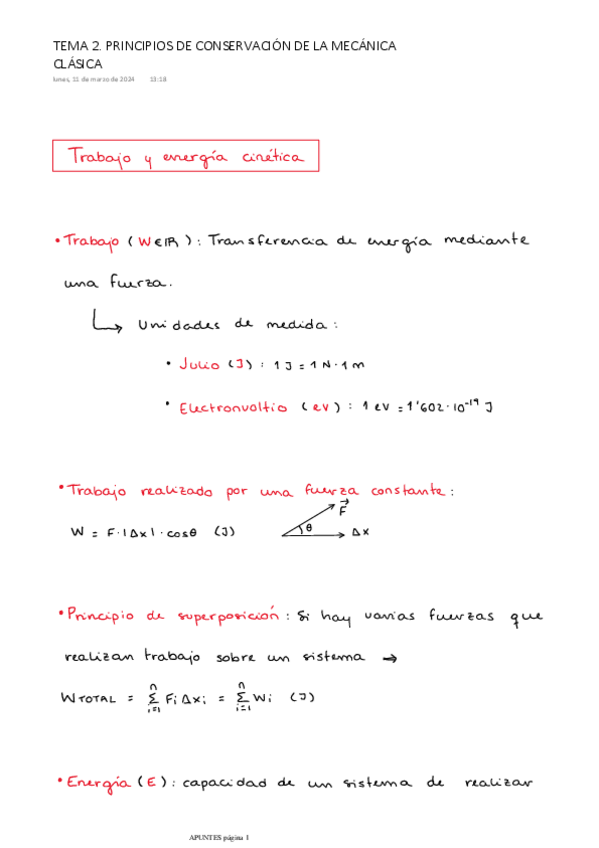 TEMA 2. PRINCIPIOS DE CONSERVACIÓN DE LA MECÁNICA
CLÁSICA
lunes, 11 de marzo de 2024 13:18
Trabajo y energía cinética
• Trabajo (W∈ℝ): Transferencia de energía mediante
una fuerza.
↳ Unidades de medida:
• Julio (J): 1 J = 1 N · 1 m
• Electronvoltio (eV): 1 eV = 1'602 · 10⁻¹⁹ J
• Trabajo realizado por una fuerza constante:
W = F · |Δx| · cosθ (J) θ F⃗ Δx
• Principio de superposición: Si hay varias fuerzas que
realizan trabajo sobre un sistema →
WTOTAL = Σⁿᵢ₌₁ Fᵢ Δxᵢ = Σⁿᵢ₌₁ Wᵢ (J)
• Energía (E): capacidad de un sistema de realizar
APUNTES página 1